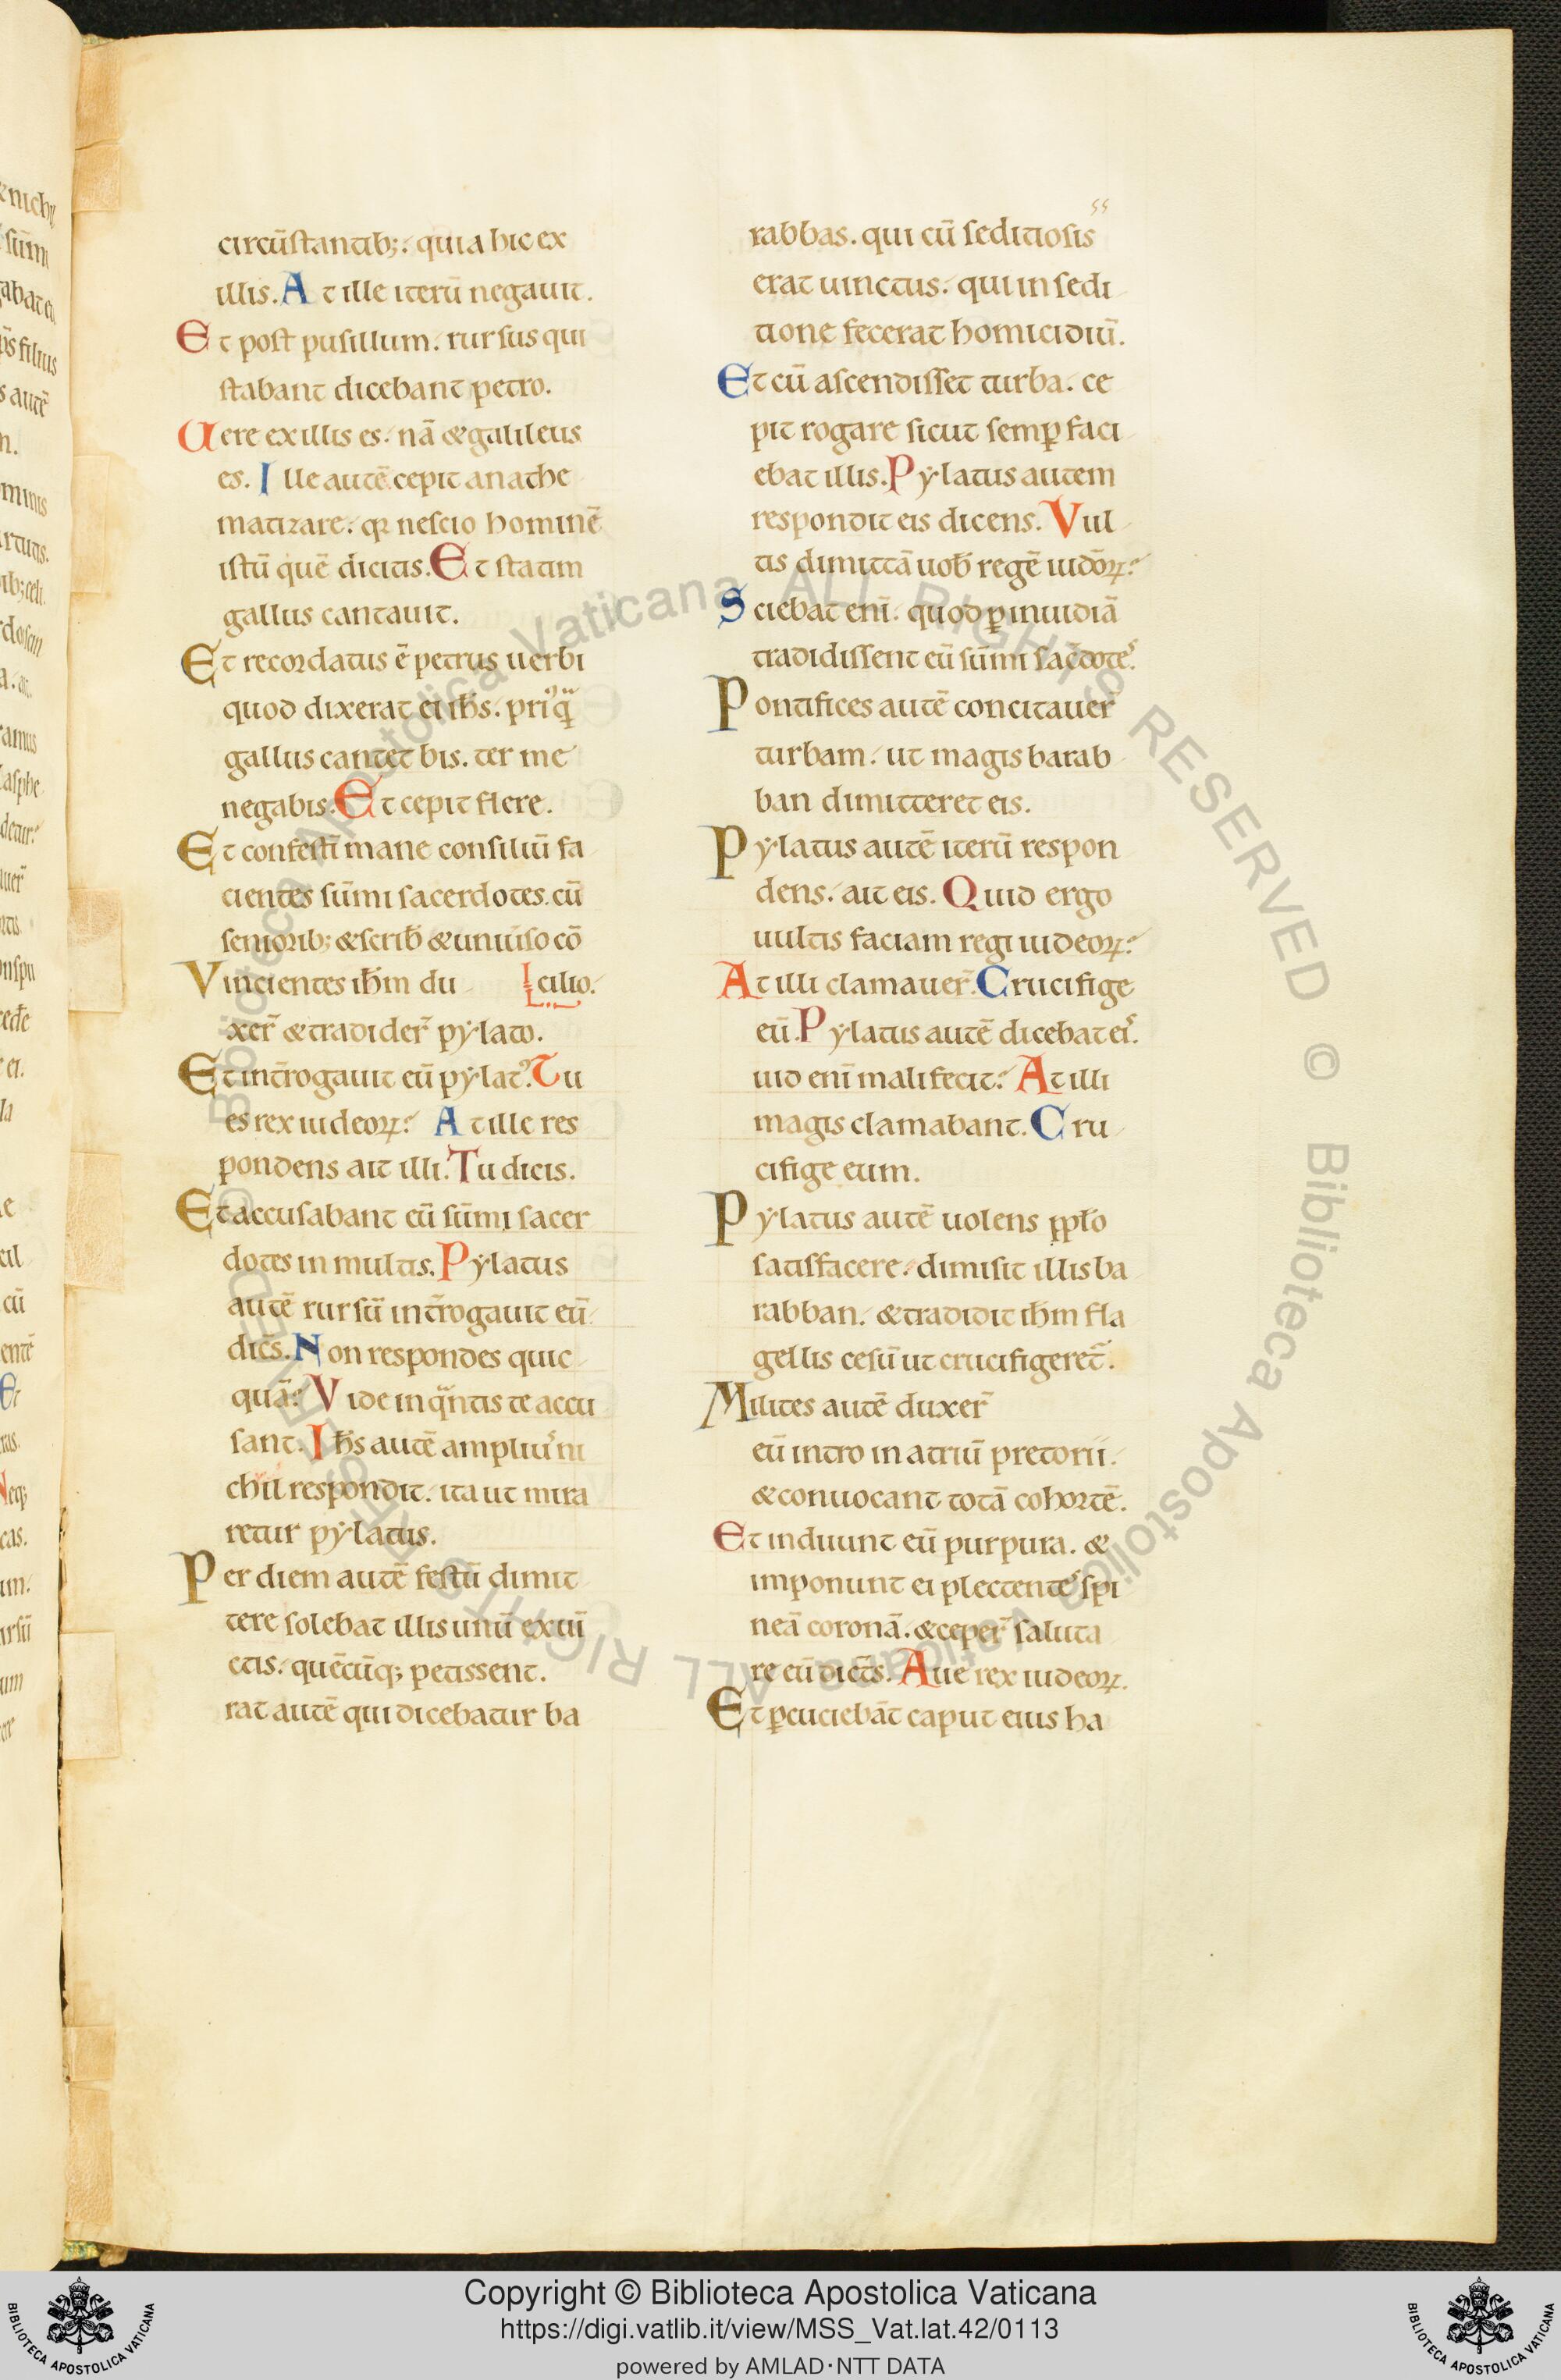 55
circũstantib;. quia hic ex
illis. At ille iterũ negauit.
Et post pusillum. rursus qui
stabant dicebant petro.
Uere ex illis es. nã & galileus
es. Ille autẽ cepit anathe
matizare. qꝛ nescio hominẽ
istũ quẽ dicitis. Et statim
gallus cantauit.
Et recordatus ẽ petrus uerbi
quod dixerat ei ihs̄. pri᷒q̃
gallus cantet bis. ter me
negabis. Et cepit flere.
Et confestĩ mane consiliũ fa
cientes sũmi sacerdotes. cũ
seniorib; & scrib̄ & uniu̾so cõ
cilio.
Vincientes ihm̄ du
xer̄ & tradider̄ pylato.
Et int̄rogauit eũ pylat᷒. Tu
es rex iudeoꝝ? At ille res
pondens ait illi. Tu dicis.
Et accusabant eũ sũmi sacer
dotes in multis. Pylatus
autẽ rursũ int̄rogauit eũ
dic̄s. Non respondes quic
quã? Vide in q̃ntis te accu
sant. Ihs̄ autẽ ampliu᷒ ni
chil respondit. ita ut mira
retur pylatus.
Per diem autẽ festũ dimit
tere solebat illis unũ ex uĩ
ctis. quẽcũq; petissent.
rat autẽ qui dicebatur ba
rabbas. qui cũ seditiosis
erat uinctus. qui in sedi
tione fecerat homicidiũ.
Et cũ ascendisset turba. ce
pit rogare sicut semꝑ faci
ebat illis. Pylatus autem
respondit eis dicens. Vul
tis dimittã uob̄ regẽ iudõꝝ?
Sciebat enĩ. quod ꝑ inuidiã
tradidissent eũ sũmi sac̄dote᷒.
Pontifices autẽ concitauer̄
turbam. ut magis barab
ban dimitteret eis.
Pylatus autẽ iterũ respon
dens. ait eis. Quid ergo
uultis faciam regi iudeoꝝ?
At illi clamauer̄. Crucifige
eũ. Pylatus autẽ dicebat ei᷒.
uid enĩ mali fecit? At illi
magis clamabant. Cru
cifige eum.
Pylatus autẽ uolens ppło
satisfacere. dimisit illis ba
rabban. & tradidit ihm̄ fla
gellis cesũ ut crucifigeret̄.
Milites autẽ duxer̄
eũ intro in atriũ pretorii.
& conuocant totã cohortẽ.
Et induunt eũ purpura. &
imponunt ei plectente᷒ spi
neã coronã. & ceper̄ saluta
re eũ dicẽs. Aue rex iudeoꝝ.
Et ꝑcuciebãt caput eius ha
Copyright © Biblioteca Apostolica Vaticana
https://digi.vatlib.it/view/MSS_Vat.lat.42/0113
powered by AMLAD·NTT DATA
BIBLIOTECA APOSTOLICA VATICANA
BIBLIOTECA APOSTOLICA VATICANA